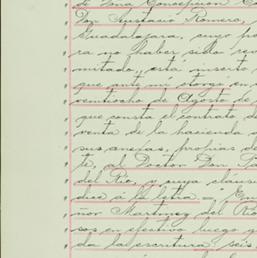 de Doña Concepcion
Don Gustavo Romero,
Guadalajara, cuyo po
ra no haber sido rev
mitado, está inserto
que ante mí otorgó en
ventiocho de Agosto de
que consta el contrato de
venta de la hacienda
sus anexas, propias de
te, al Doctor Don P
del Río, y cuya cláusu
dice á la letra = "
ñor Martinez del Río
sos en efectivo luego q
da la escritura, seis